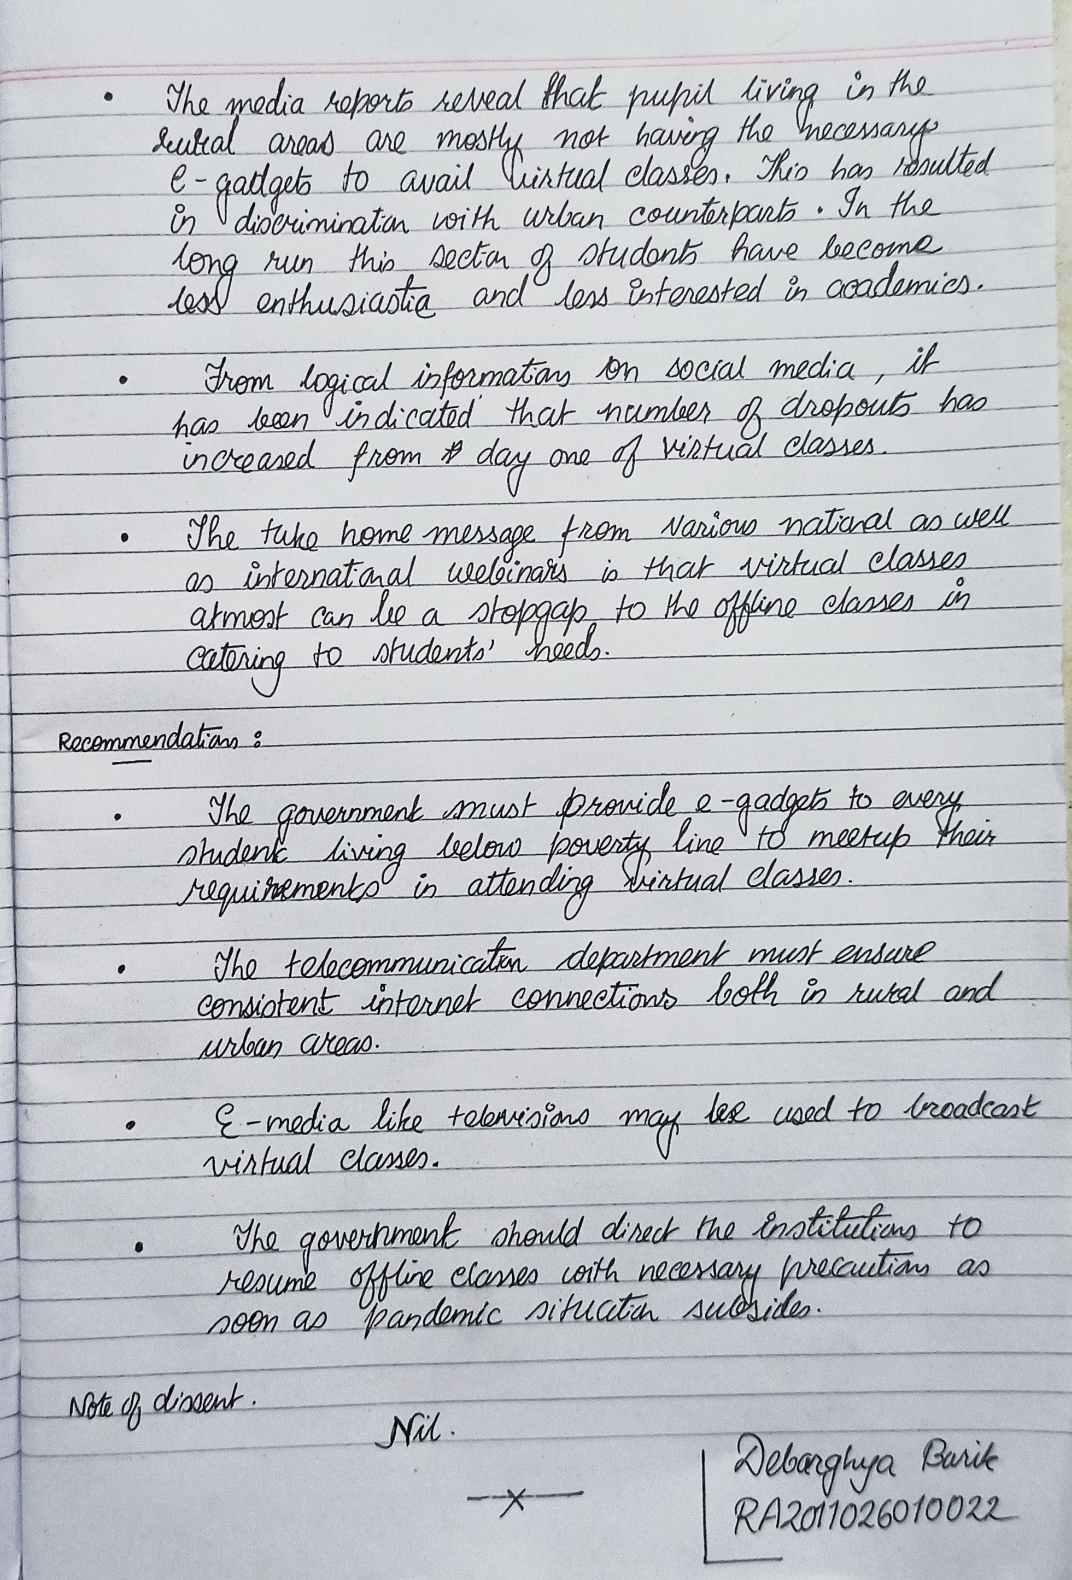 • The media reports reveal that pupil living in the
rural areas are mostly not having the necessary
e-gadgets to avail virtual classes. This has resulted
in discrimination with urban counterparts. In the
long run this sector of students have become
less enthusiastic and less interested in academics.
• From logical informations on social media, it
has been indicated that number of dropouts has
increased from day one of virtual classes.
• The take home message from various national as well
as international webinars is that virtual classes
atmost can be a stopgap to the offline classes in
catering to students' needs.
Recommendations:
• The government must provide e-gadgets to every
student living below poverty line to meetup their
requirements in attending virtual classes.
• The telecommunication department must ensure
consistent internet connections both in rural and
urban areas.
• E-media like televisions may be used to broadcast
virtual classes.
• The government should direct the institutions to
resume offline classes with necessary precautions as
soon as pandemic situation subsides.
Note of dissent.
Nil.
—x—
Debarghya Barik
RA2011026010022